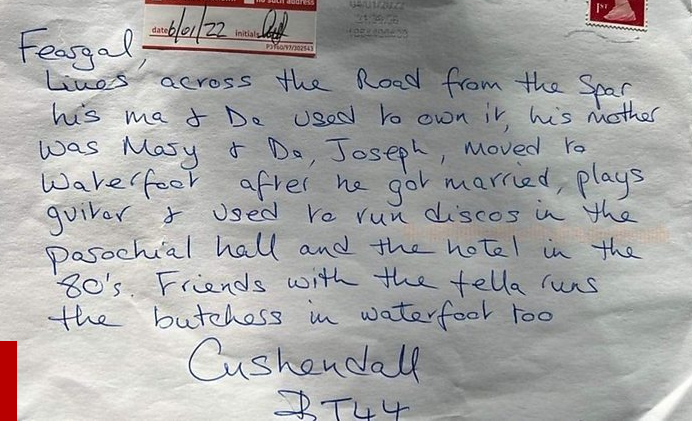 no such address
date 6/01/22 initials
P3960/97/302543
1ST
Feargal,
Lives across the Road from the Spar
his ma & Da used to own it, his mother
was Mary & Da, Joseph, moved to
Waterfoot after he got married, plays
guitar & used to run discos in the
parochial hall and the hotel in the
80's. Friends with the fella runs
the butchers in waterfoot too
Cushendall
BT44